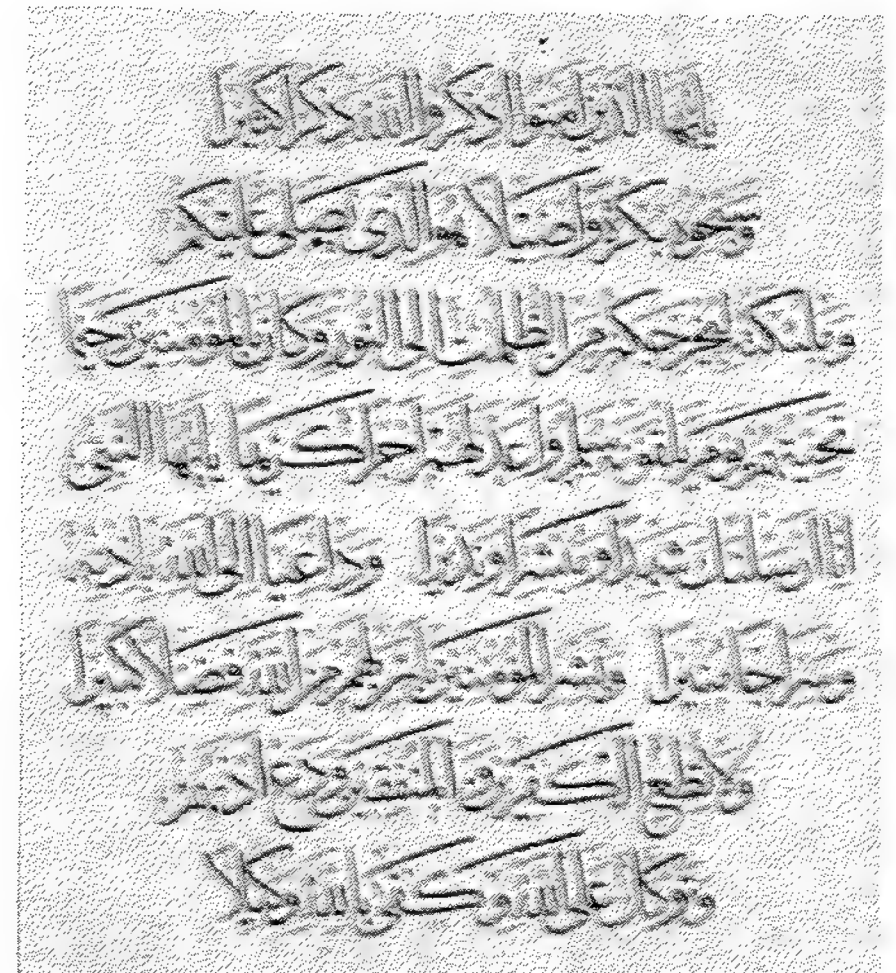 يأيها الذين امنوا اذكروا الله ذكرا كثيرا
وسبحوه بكرة واصيلا هو الذى يصلى عليكم
وملئكته ليخرجكم من الظلمت الى النور وكان بالمومنين رحيما
تحيتهم يوم يلقونه سلم واعد لهم اجرا كريما يأيها النبى
انا ارسلنك شهدا ومبشرا ونذيرا وداعيا الى الله باذنه
وسراجا منيرا وبشر المومنين بان لهم من الله فضلا كبيرا
ولا تطع الكفرين والمنفقين ودع اذىهم
وتوكل على الله وكفى بالله وكيلا